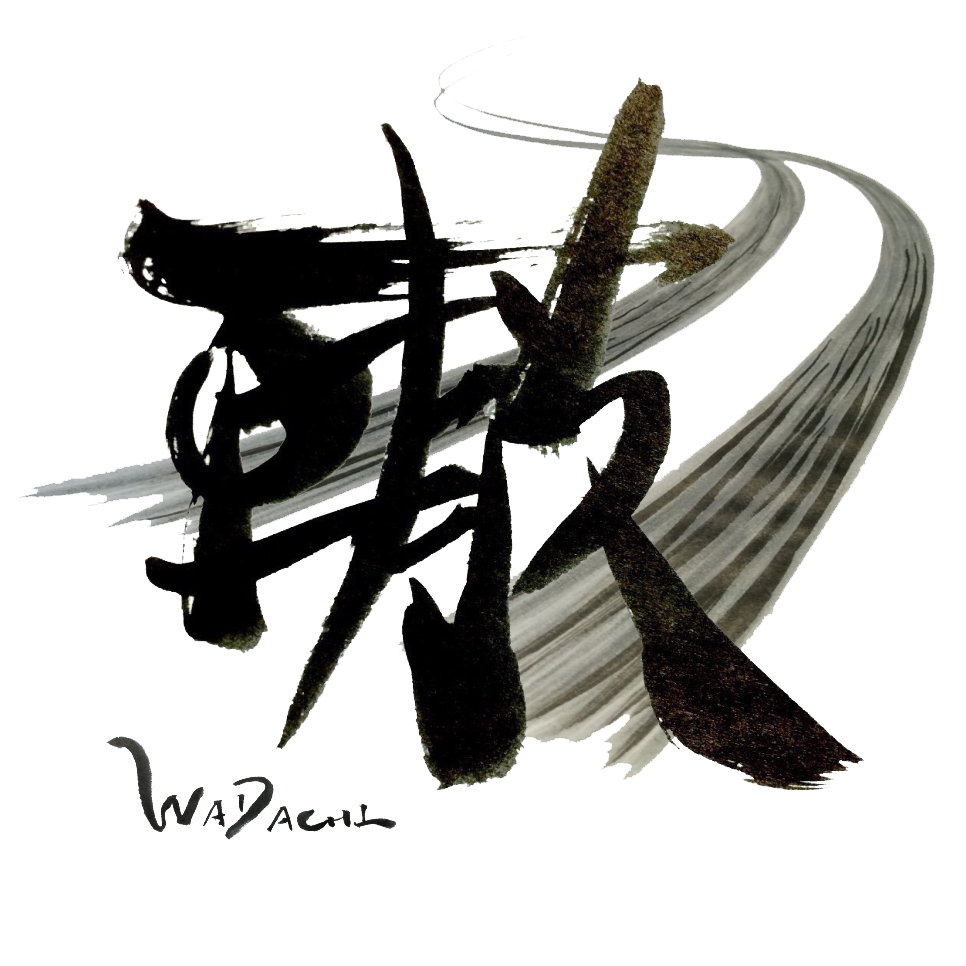 轍
WADACHI